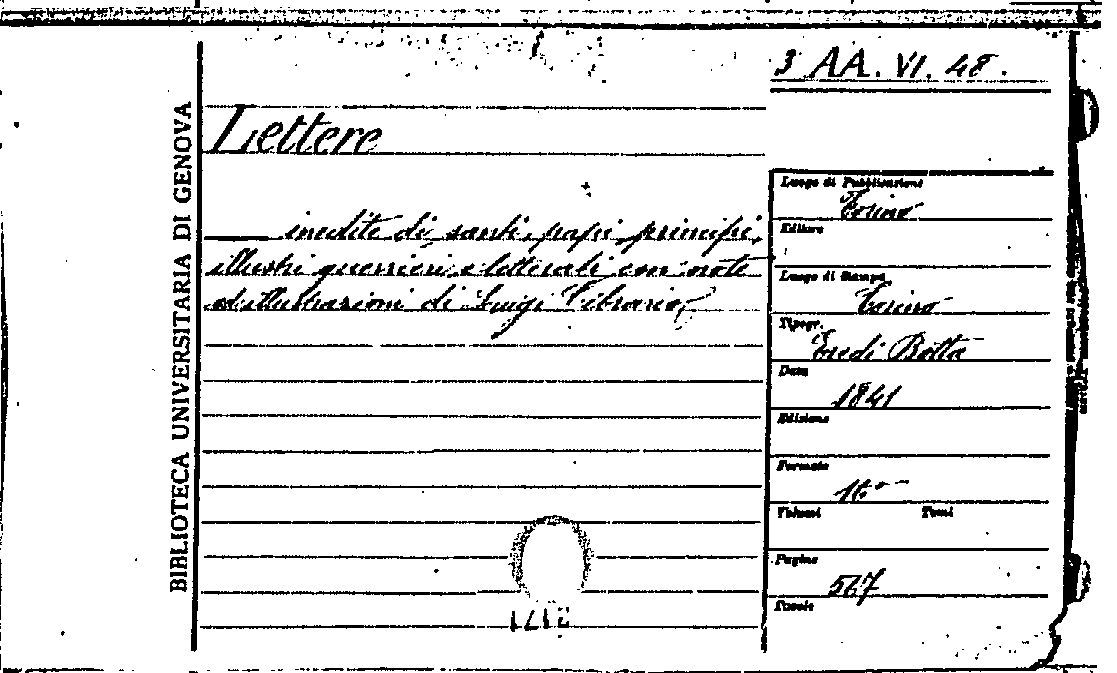 3 AA. VI. 48.
BIBLIOTECA UNIVERSITARIA DI GENOVA
Lettere
inedite di santi, papi, principi,
illustri guerrieri e letterati con note
ed illustrazioni di Luigi Cibrario
Luogo di Pubblicazione
Torino
Editore
Luogo di Stampa
Torino
Tipogr.
Eredi Botta
Data
1841
Edizione
Formato
16°
Volumi Tomi
Pagine
567
Tavole